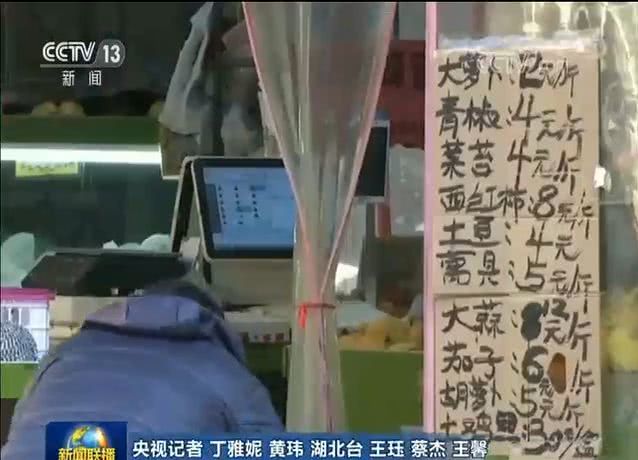 CCTV 13
新闻
大萝卜:2元/斤
青椒:4元/斤
菜苔:4元/斤
西红柿:8元/斤
土豆:4元/斤
莴具:5元/斤
大蒜:12元/斤
茄子:6元/斤
胡萝卜:5元/斤
土鸡蛋:30元/
央视记者 丁雅妮 黄玮 湖北台 王珏 蔡杰 王馨
新闻联播